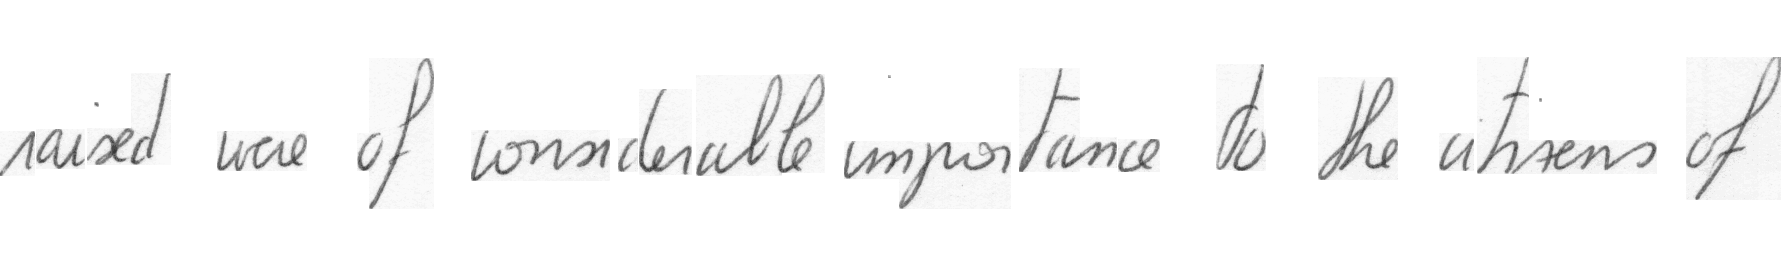 raised were of considerable importance to the citizens of